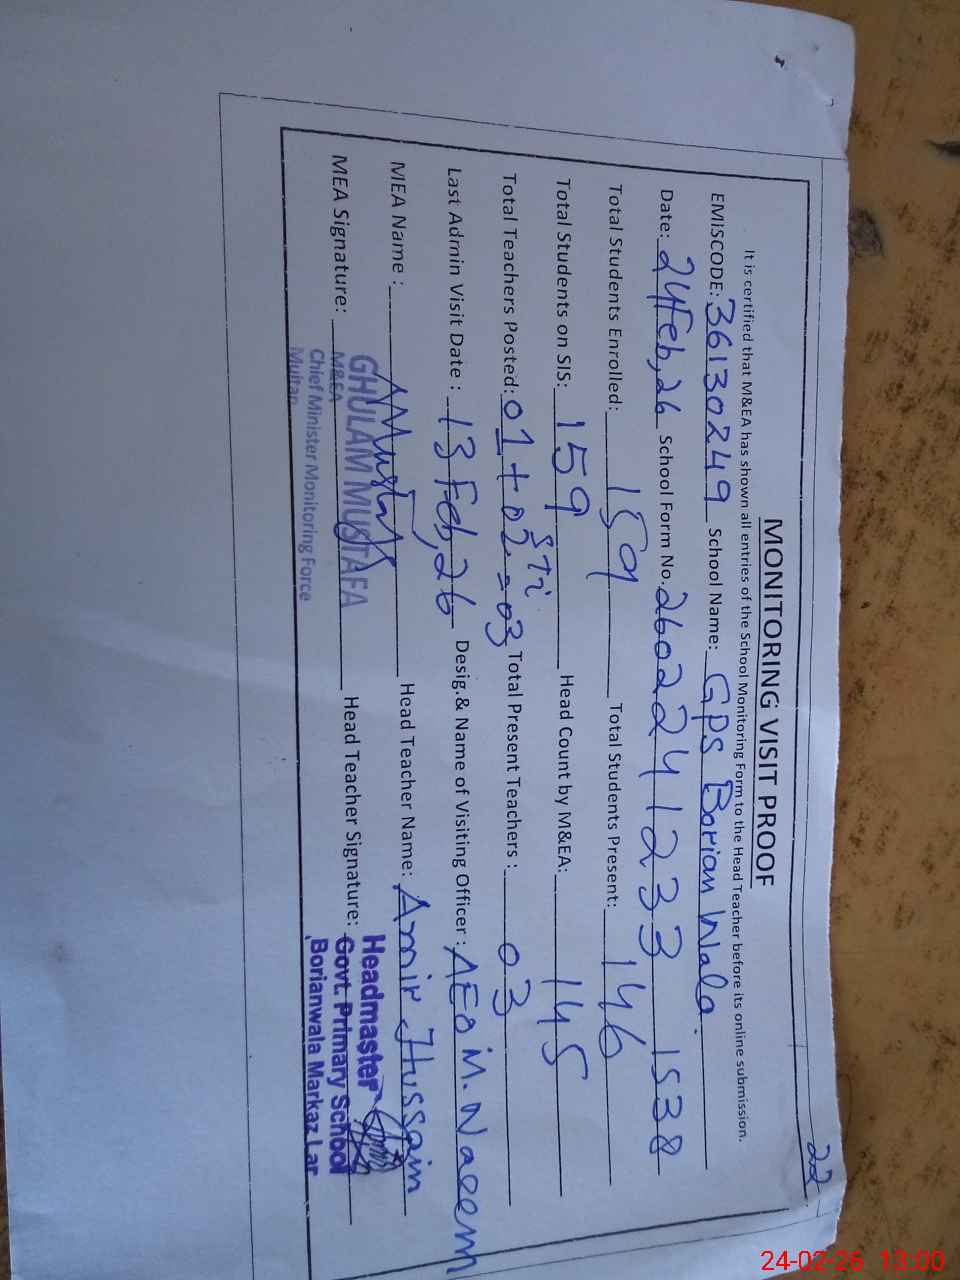 22
MONITORING VISIT PROOF
It is certified that M&EA has shown all entries of the School Monitoring Form to the Head Teacher before its online submission.
EMISCODE: 36130249 School Name: GPS Borian Wala.
Date: 24 Feb, 26 School Form No. 26022412 33 1538
Total Students Enrolled: 159 Total Students Present: 146
Total Students on SIS: 159 Head Count by M&EA: 145
STi
Total Teachers Posted: 01 + 02 = 03 Total Present Teachers : 03
Last Admin Visit Date : 13 Feb, 26 Desig.& Name of Visiting Officer : AEO M. Naeem
MEA Name : Head Teacher Name: Amir Hussain
MEA Signature: Head Teacher Signature:
GHULAM MUSTAFA
M&EA
Chief Minister Monitoring Force
Multan
Headmaster
Govt. Primary School
Borianwala Markaz Lar
24-02-26 13:00